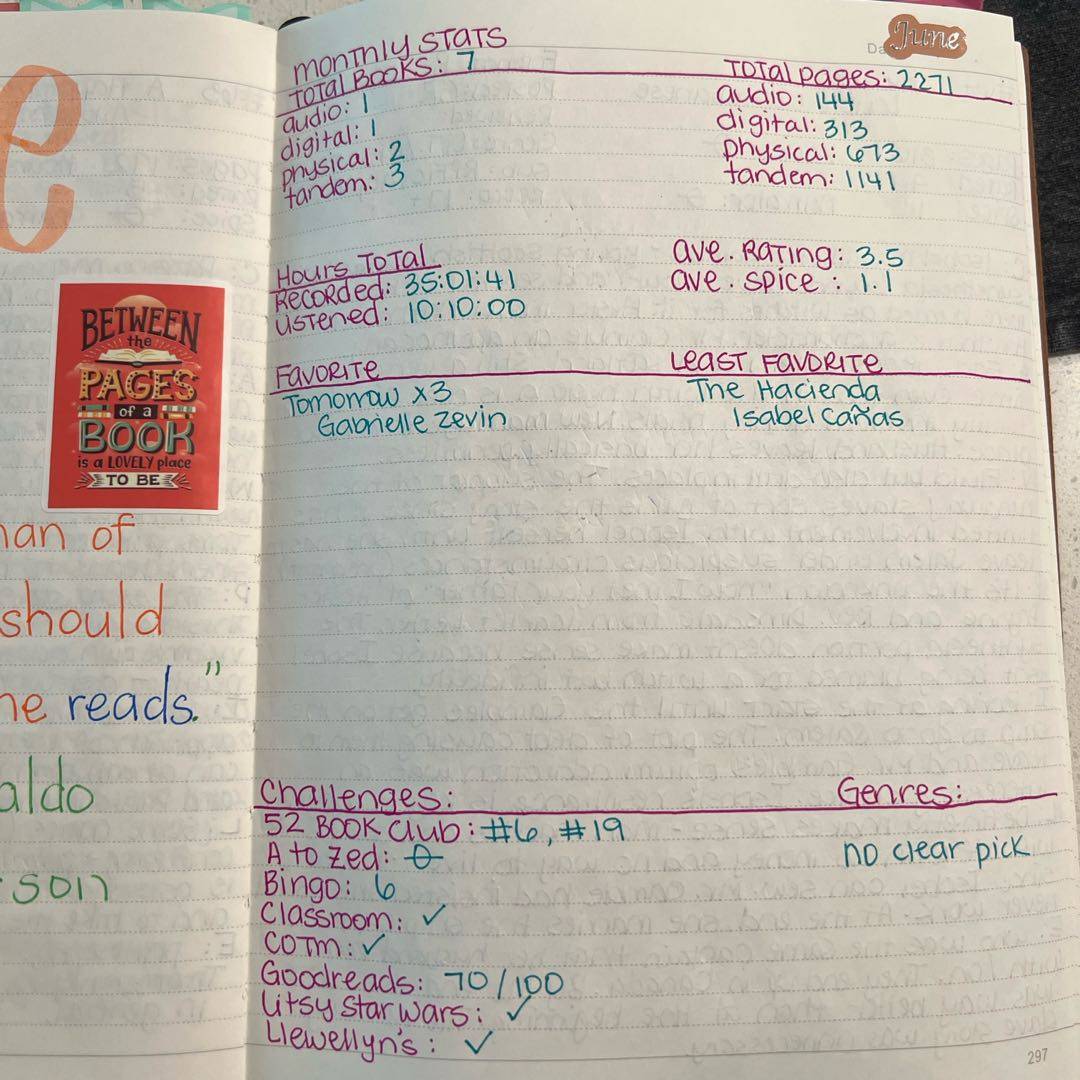 e
BETWEEN
the
PAGES
of a
BOOK
is a LOVELY place
TO BE
an of
should
he reads."
aldo
son
June
Monthly Stats
Total Books: 7
audio: 1
digital: 1
physical: 2
tandem: 3
Total pages: 2271
audio: 144
digital: 313
physical: 673
tandem: 1141
Hours Total
Recorded: 35:01:41
Listened: 10:10:00
ave. Rating: 3.5
ave. spice : 1.1
Favorite
Tomorrow x3
Gabrielle Zevin
Least Favorite
The Hacienda
Isabel Cañas
Challenges:
52 Book Club: #6, #19
A to Zed: 0
Bingo: 6
Classroom: ✓
COTM: ✓
Goodreads: 70/100
Litsy Star Wars: ✓
Llewellyn's: ✓
Genres:
no clear pick
297